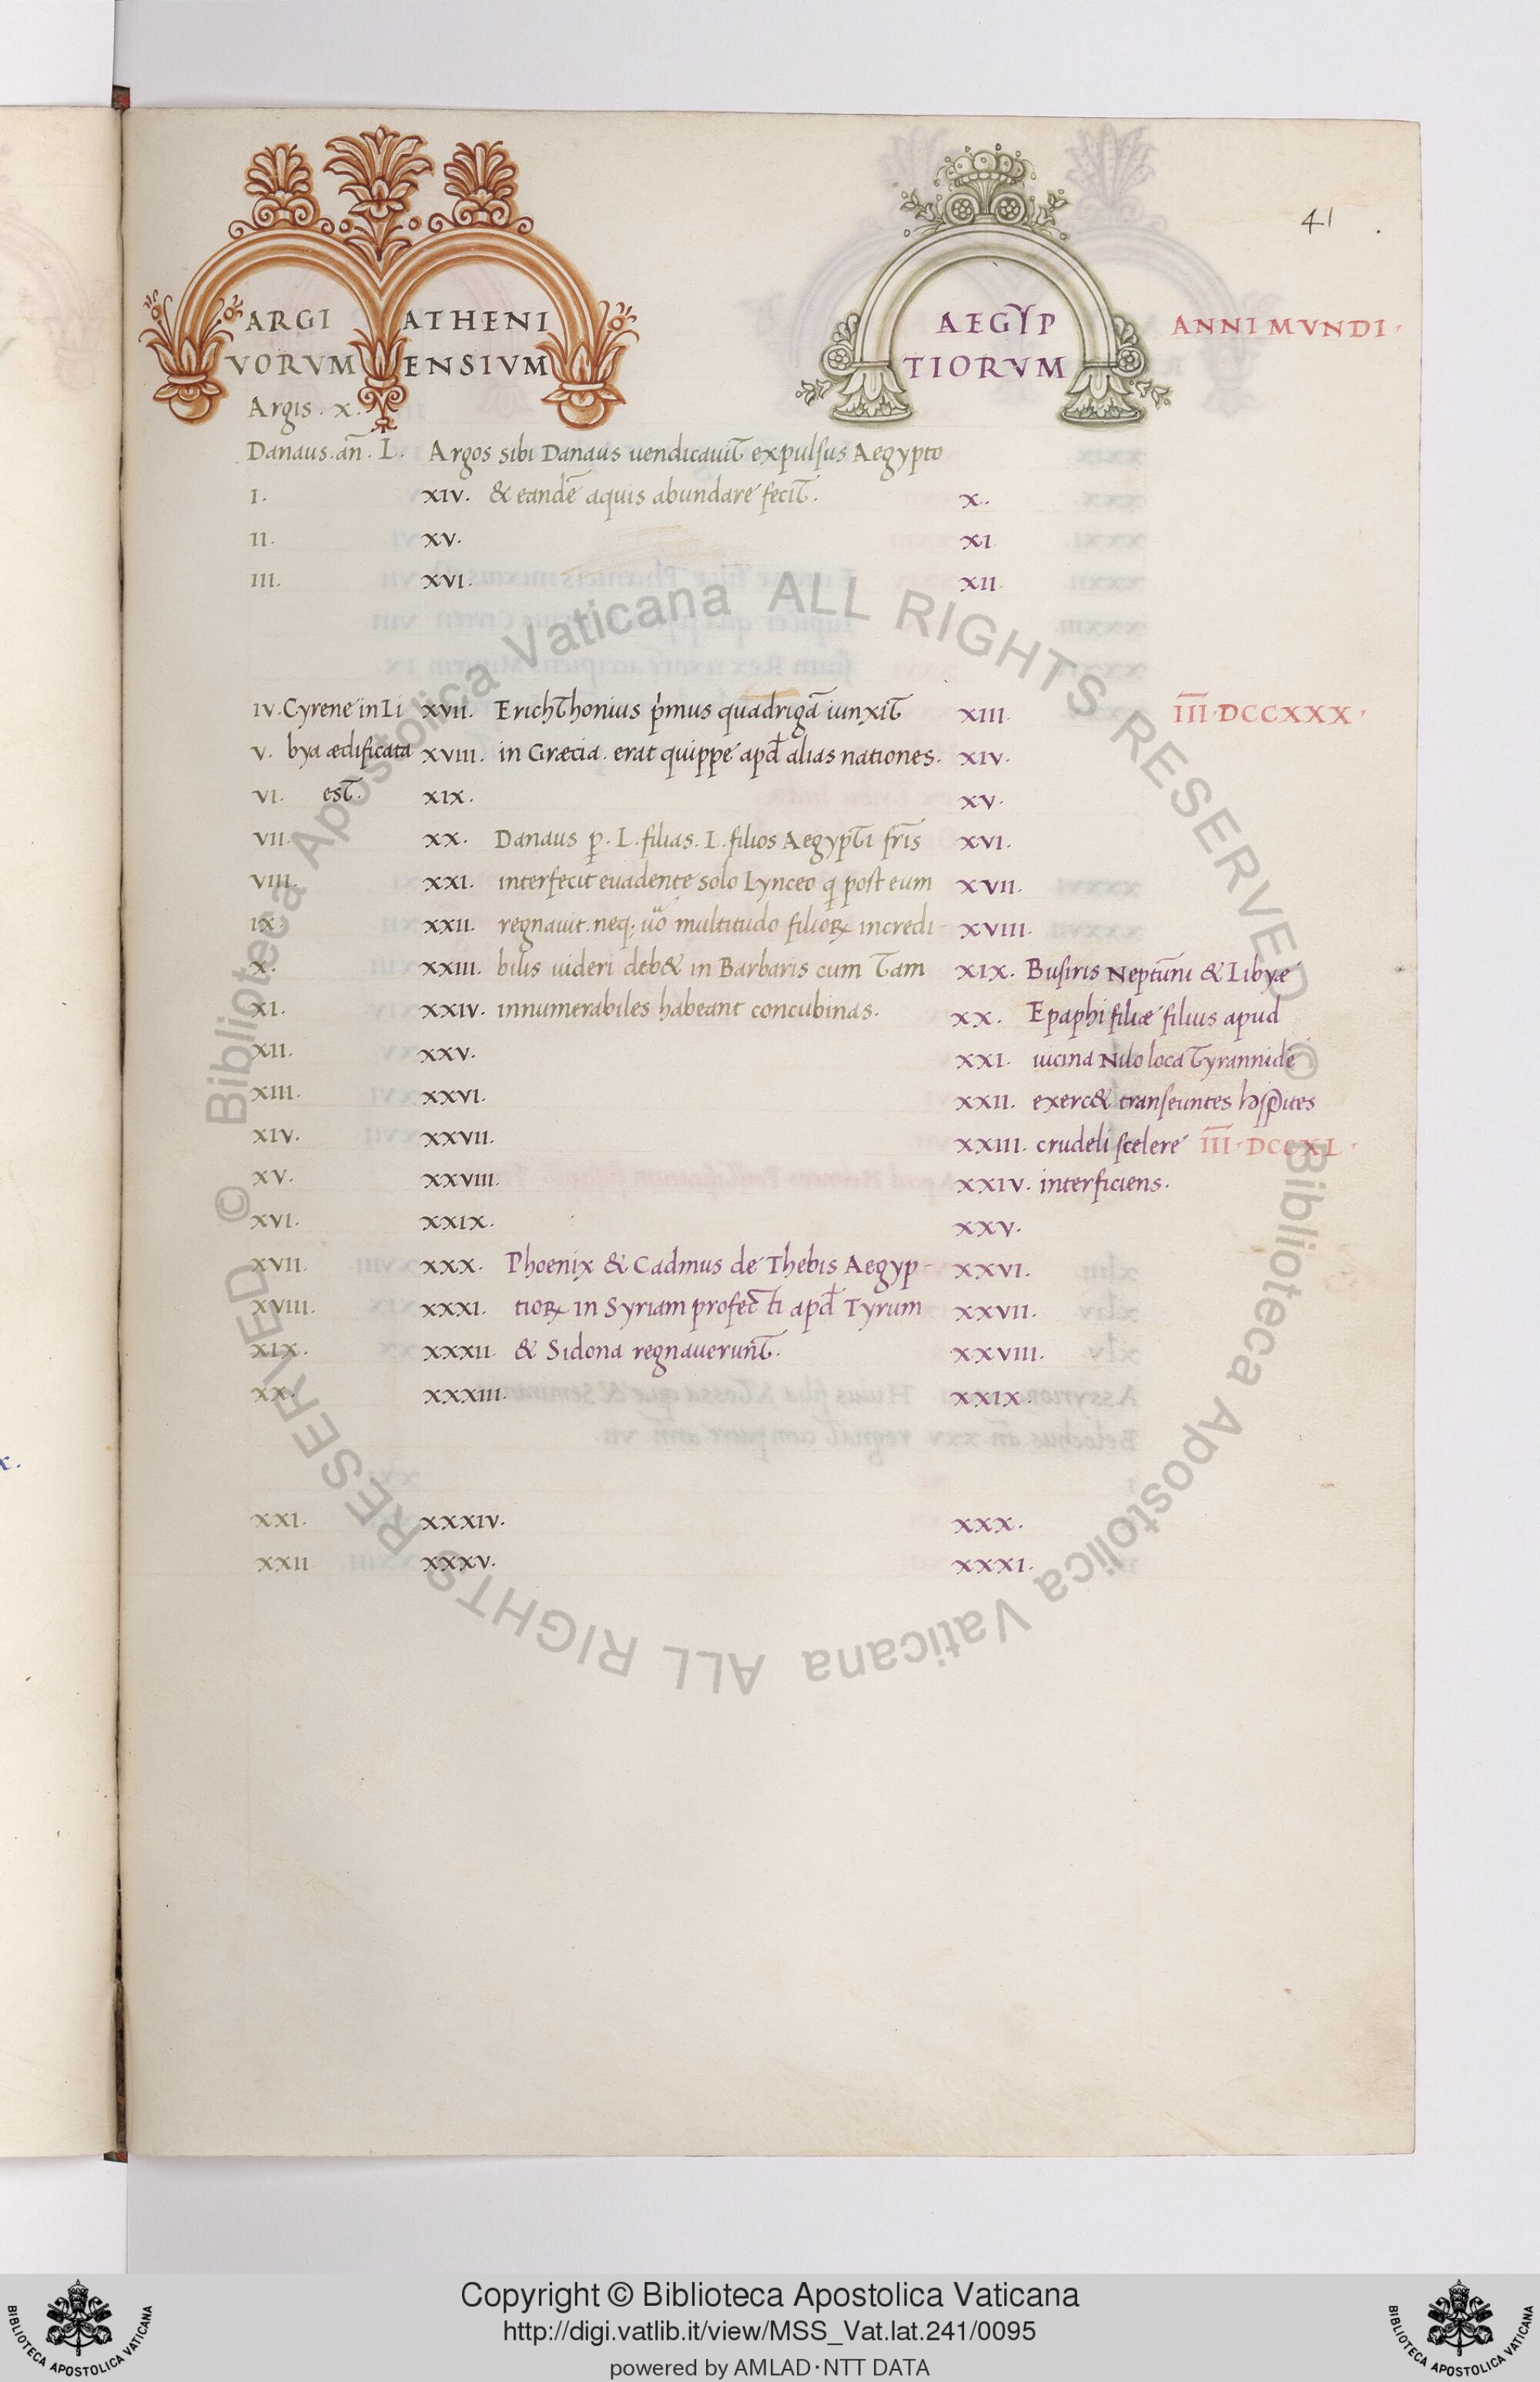 41
ARGI ATHENI AEGYP ANNI MVNDI
VORVM ENSIVM TIORVM
Argis . x.
Danaus . an̄ . L . Argos sibi Danaus uendicauit expulsus Aegypto
I. XIV. & eandē aquis abundare fecit. X.
II. XV. XI
III. XVI. XII.
IV. Cyrene in Li XVII. Erichthonius p̓mus quadrigā iunxit XIII. III·DCCXXX·
V. bya ædificata XVIII. in Græcia . erat quippe apđ alias nationes. XIV.
VI. est. XIX. XV.
VII. XX. Danaus ꝑ . L . filias . L . filios Aegypti fr̄is XVI.
VIII. XXI. interfecit euadente solo Lynceo q̱ post eum XVII.
IX. XXII. regnauit . neq; uo᷒ multitudo filioꝝ incredi- XVIII.
X. XXIII. bilis uideri deb& in Barbaris cum tam XIX. Busiris Neptuni & Libyæ
XI. XXIV. innumerabiles habeant concubinas. XX. Epaphi filiæ filius apud
XII. XXV. XXI. uicina Nilo loca Tyrannidē
XIII. XXVI. XXII. exerc& transeuntes hospites
XIV. XXVII. XXIII. crudeli scelere III·DCCXL·
XV. XXVIII. XXIV. interficiens.
XVI. XXIX. XXV.
XVII. XXX. Phoenix & Cadmus de Thebis Aegyp- XXVI.
XVIII. XXXI. tioꝝ in Syriam profecti apđ Tyrum XXVII.
XIX. XXXII & Sidona regnauerunt. XXVIII.
XX. XXXIII. XXIX.
XXI. XXXIV. XXX.
XXII XXXV. XXXI.
© Biblioteca Apostolica Vaticana ALL RIGHTS RESERVED
© Biblioteca Apostolica Vaticana ALL RIGHTS RESERVED
Copyright © Biblioteca Apostolica Vaticana
http://digi.vatlib.it/view/MSS_Vat.lat.241/0095
powered by AMLAD·NTT DATA
BIBLIOTECA APOSTOLICA VATICANA
BIBLIOTECA APOSTOLICA VATICANA